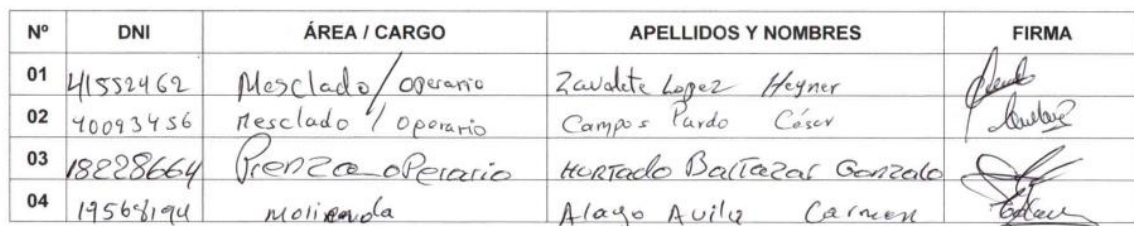 Nº DNI ÁREA / CARGO APELLIDOS Y NOMBRES FIRMA
01 41552462 Mesclado / operario Zavaleta Lopez Heyner
02 40093456 Mesclado / operario Campos Pardo César
03 18228664 Prenza operario HURTADO Baltazar Gonzalo
04 19568194 Molienda Alayo Avila Carmen